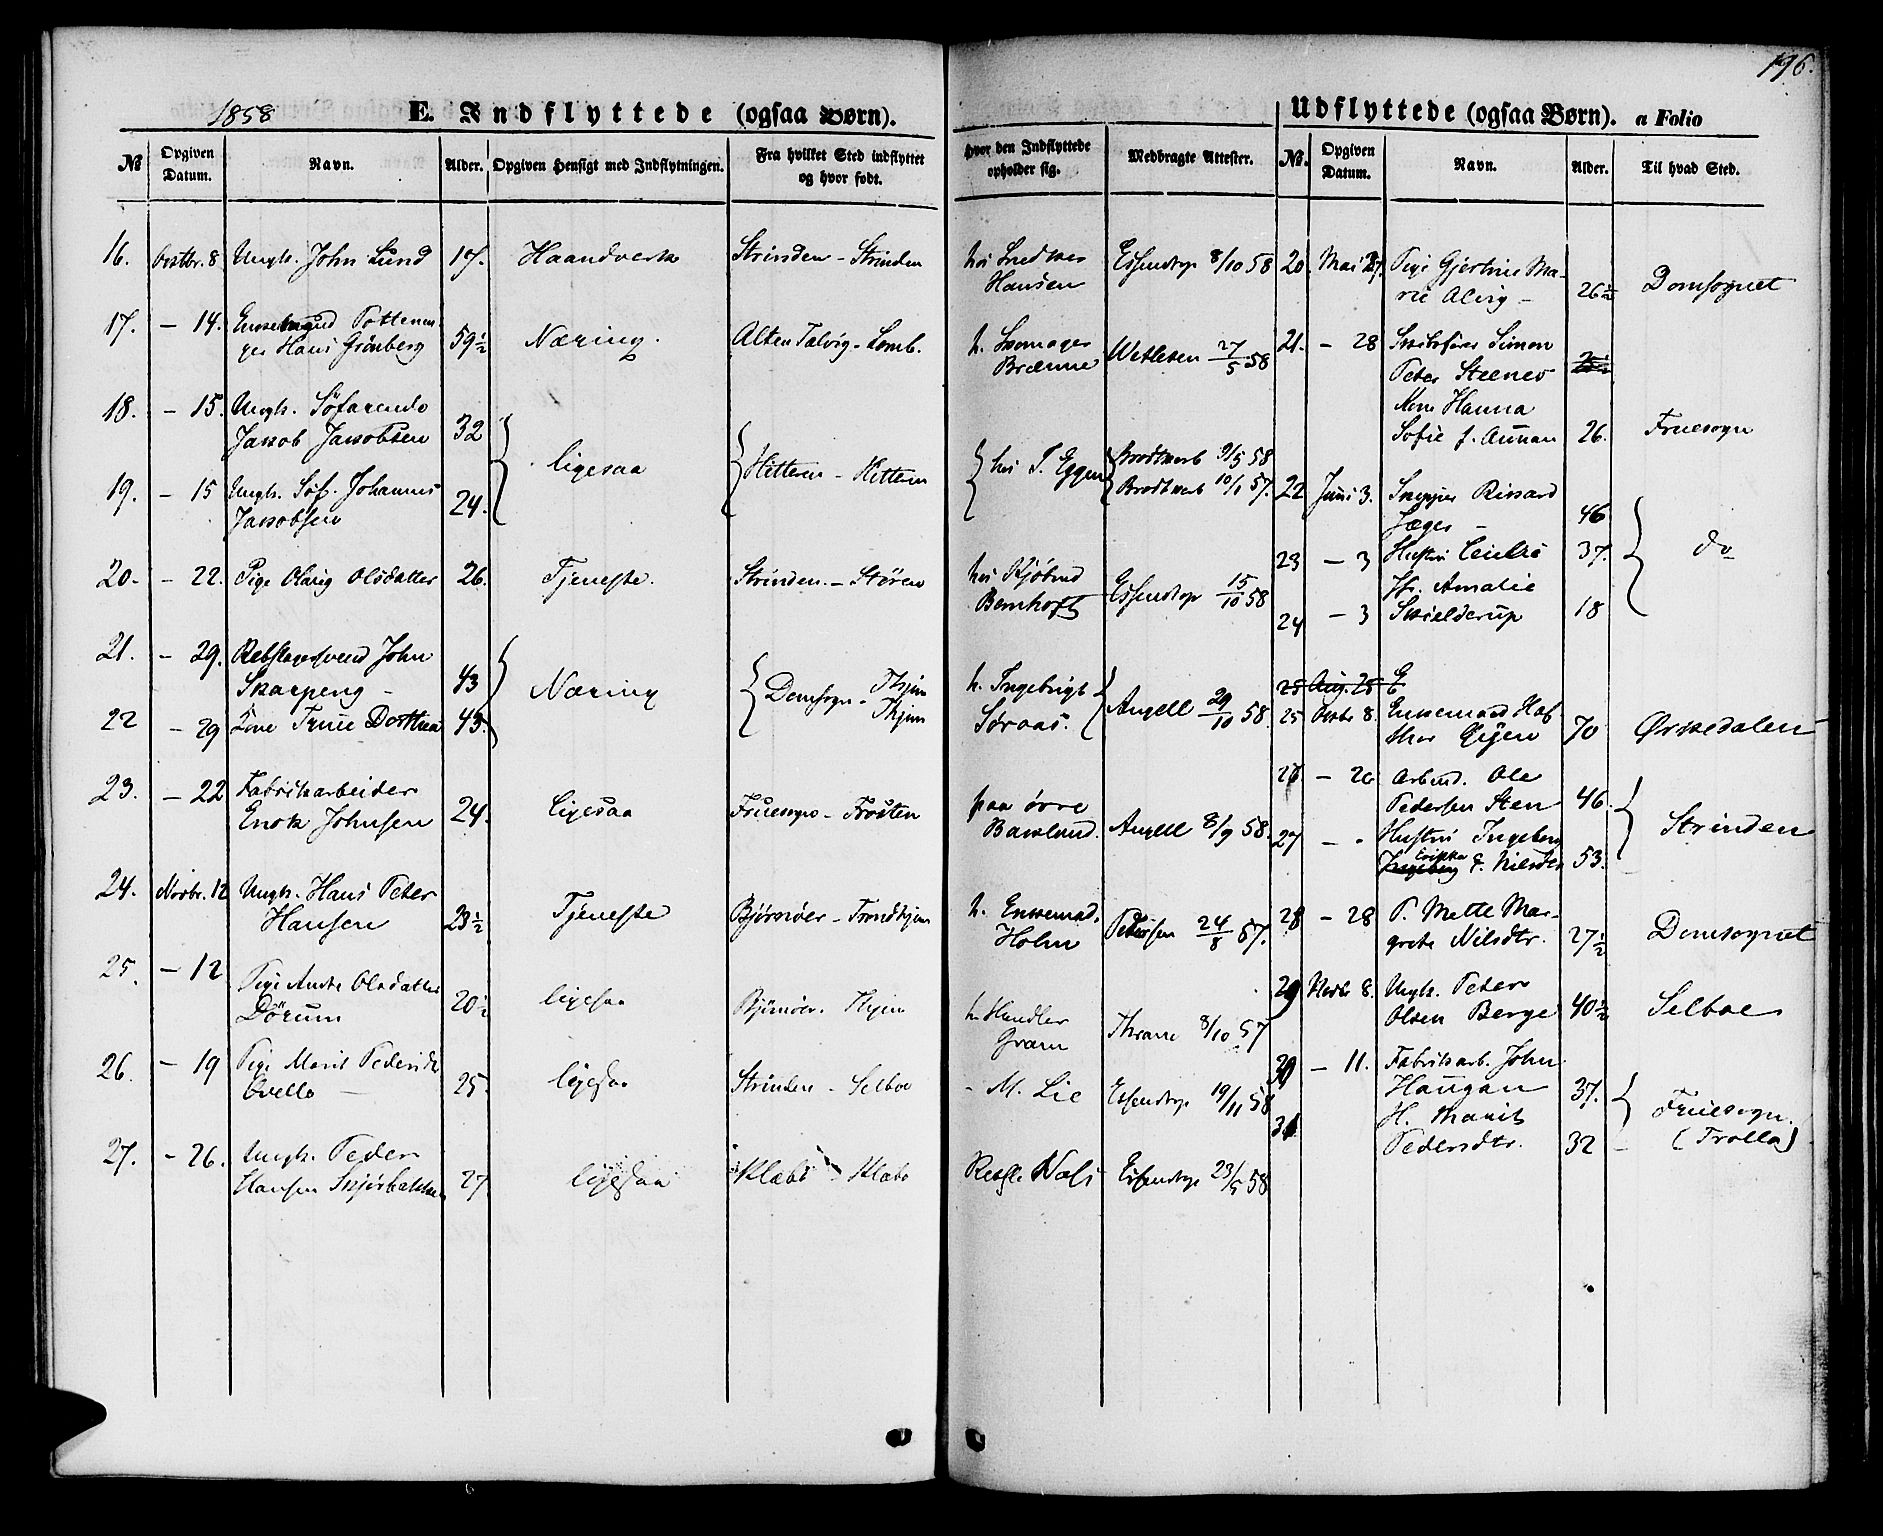 196.
1858 E. Indflyttede (ogsaa Børn). Udflyttede (ogsaa Børn). a Folio
№ Opgiven Datum. Navn. Alder. Opgiven Hensigt med Indflytningen. Fra hvilket Sted indflyttet og hvor født. Hvor den Indflyttede opholder sig. Medbragte Attester.
16. Octbr. 8 Ungk. John Lund 17. Haandverk Strinden - Strinden hos Snedker Hansen Essendrop 8/10 58
17. - 14. Enkemand Pottemager Hans Grønberg 59½ Næring. Alten Talvig - Lomb. h. Skomager Brænne Wetlesen 27/5 58
18. - 15. Ungk. Søfarende Jakob Jakobsen 32
ligesaa Hitteren - Hitteren hos P. Eggen Brodtkorb 9/5 58
19. - 15 Ungk. Søf. Johannes Jakobsen 24. Brodtkorb 10/1 57.
20. - 22. Pige Olavig Olsdatter 26. Tjeneste. Strinden. - Støren hos Kjøbmd Bernhoft Essendrop 15/10 58
21. - 29. Rebslagersvend John Skarpeng - 43
Næring Domsogn - Thjem Thjem h. Ingebrigt Søraas. Angell 29/10 58.
22 - 29 Kone Trine Dorthea 43.
23. - 22 Fabrikarbeider Enok Johnsen 24. ligesaa Fruesogn - Frosten paa øvre Baklund. Angell 8/9 58.
24. Novbr. 12 Ungk. Hans Peter Hansen 23½ Tjeneste Bjørnøer - Trondhjem h. Enkemd. Holm Petersen 24/8 57.
25. - 12 Pige Olsdatter Dørum 20½ ligesaa Bjørnøer. Thjem h. Handler Gram Thrane 8/10 57
26. - 19 Pige Marit Pedersdtr Ovello - 25. ligesaa Strinden - Selboe - M. Lie Essendrop 19/11 58
27. - 26. Ungk. Peder Hansen Skjørbakken 27 ligesaa Klæbo - Klæbo Essendrop 23/5 58
№. Opgiven Datum. Navn. Alder. Til hvad Sted.
20. Mai 27. Pige Gjertine Marie Alvig - 26½ Domsognet
21. - 28 Skibsfører Simon
Peter Steenes
Kone Hanna
Sofie f. Aunan 26. Fruesogn
22 Juni 3. Skipper Rikard
Jæger - 46
23 - 3 Hustru Cecilie 37. do
24 - 3 Amalie
Skielderup 18
25 Aug. 25 E
25 Octbr 8. Enkemand 70 Ørkedalen
26 - 26 Arbmd. Ole
Pedersen Sten 46. Strinden
27 - " Hustru Ingeborg
Ingeborg Erikka f. Nilsdtr 53.
28 - 28 P. Mette Margrete Nilsdtr. 27½ Domsognet
29 Novbr 8. Ungk. Peter
Olsen Berge 40½ Selboe
30 - 11. Fabrikarb. John
Haugan 37. Fruesogn.
31 H. Marit
Pedersdtr. 32 - (Trolla)